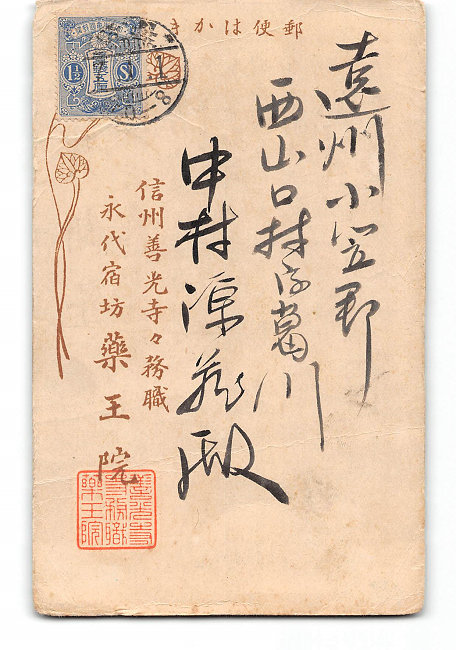 郵便はかき
遠州小笠郡
西山口村字葛川
中村源殿
信州善光寺々務職
永代宿坊 藥王院
善光寺
寺務職
藥王院
1½ Sn